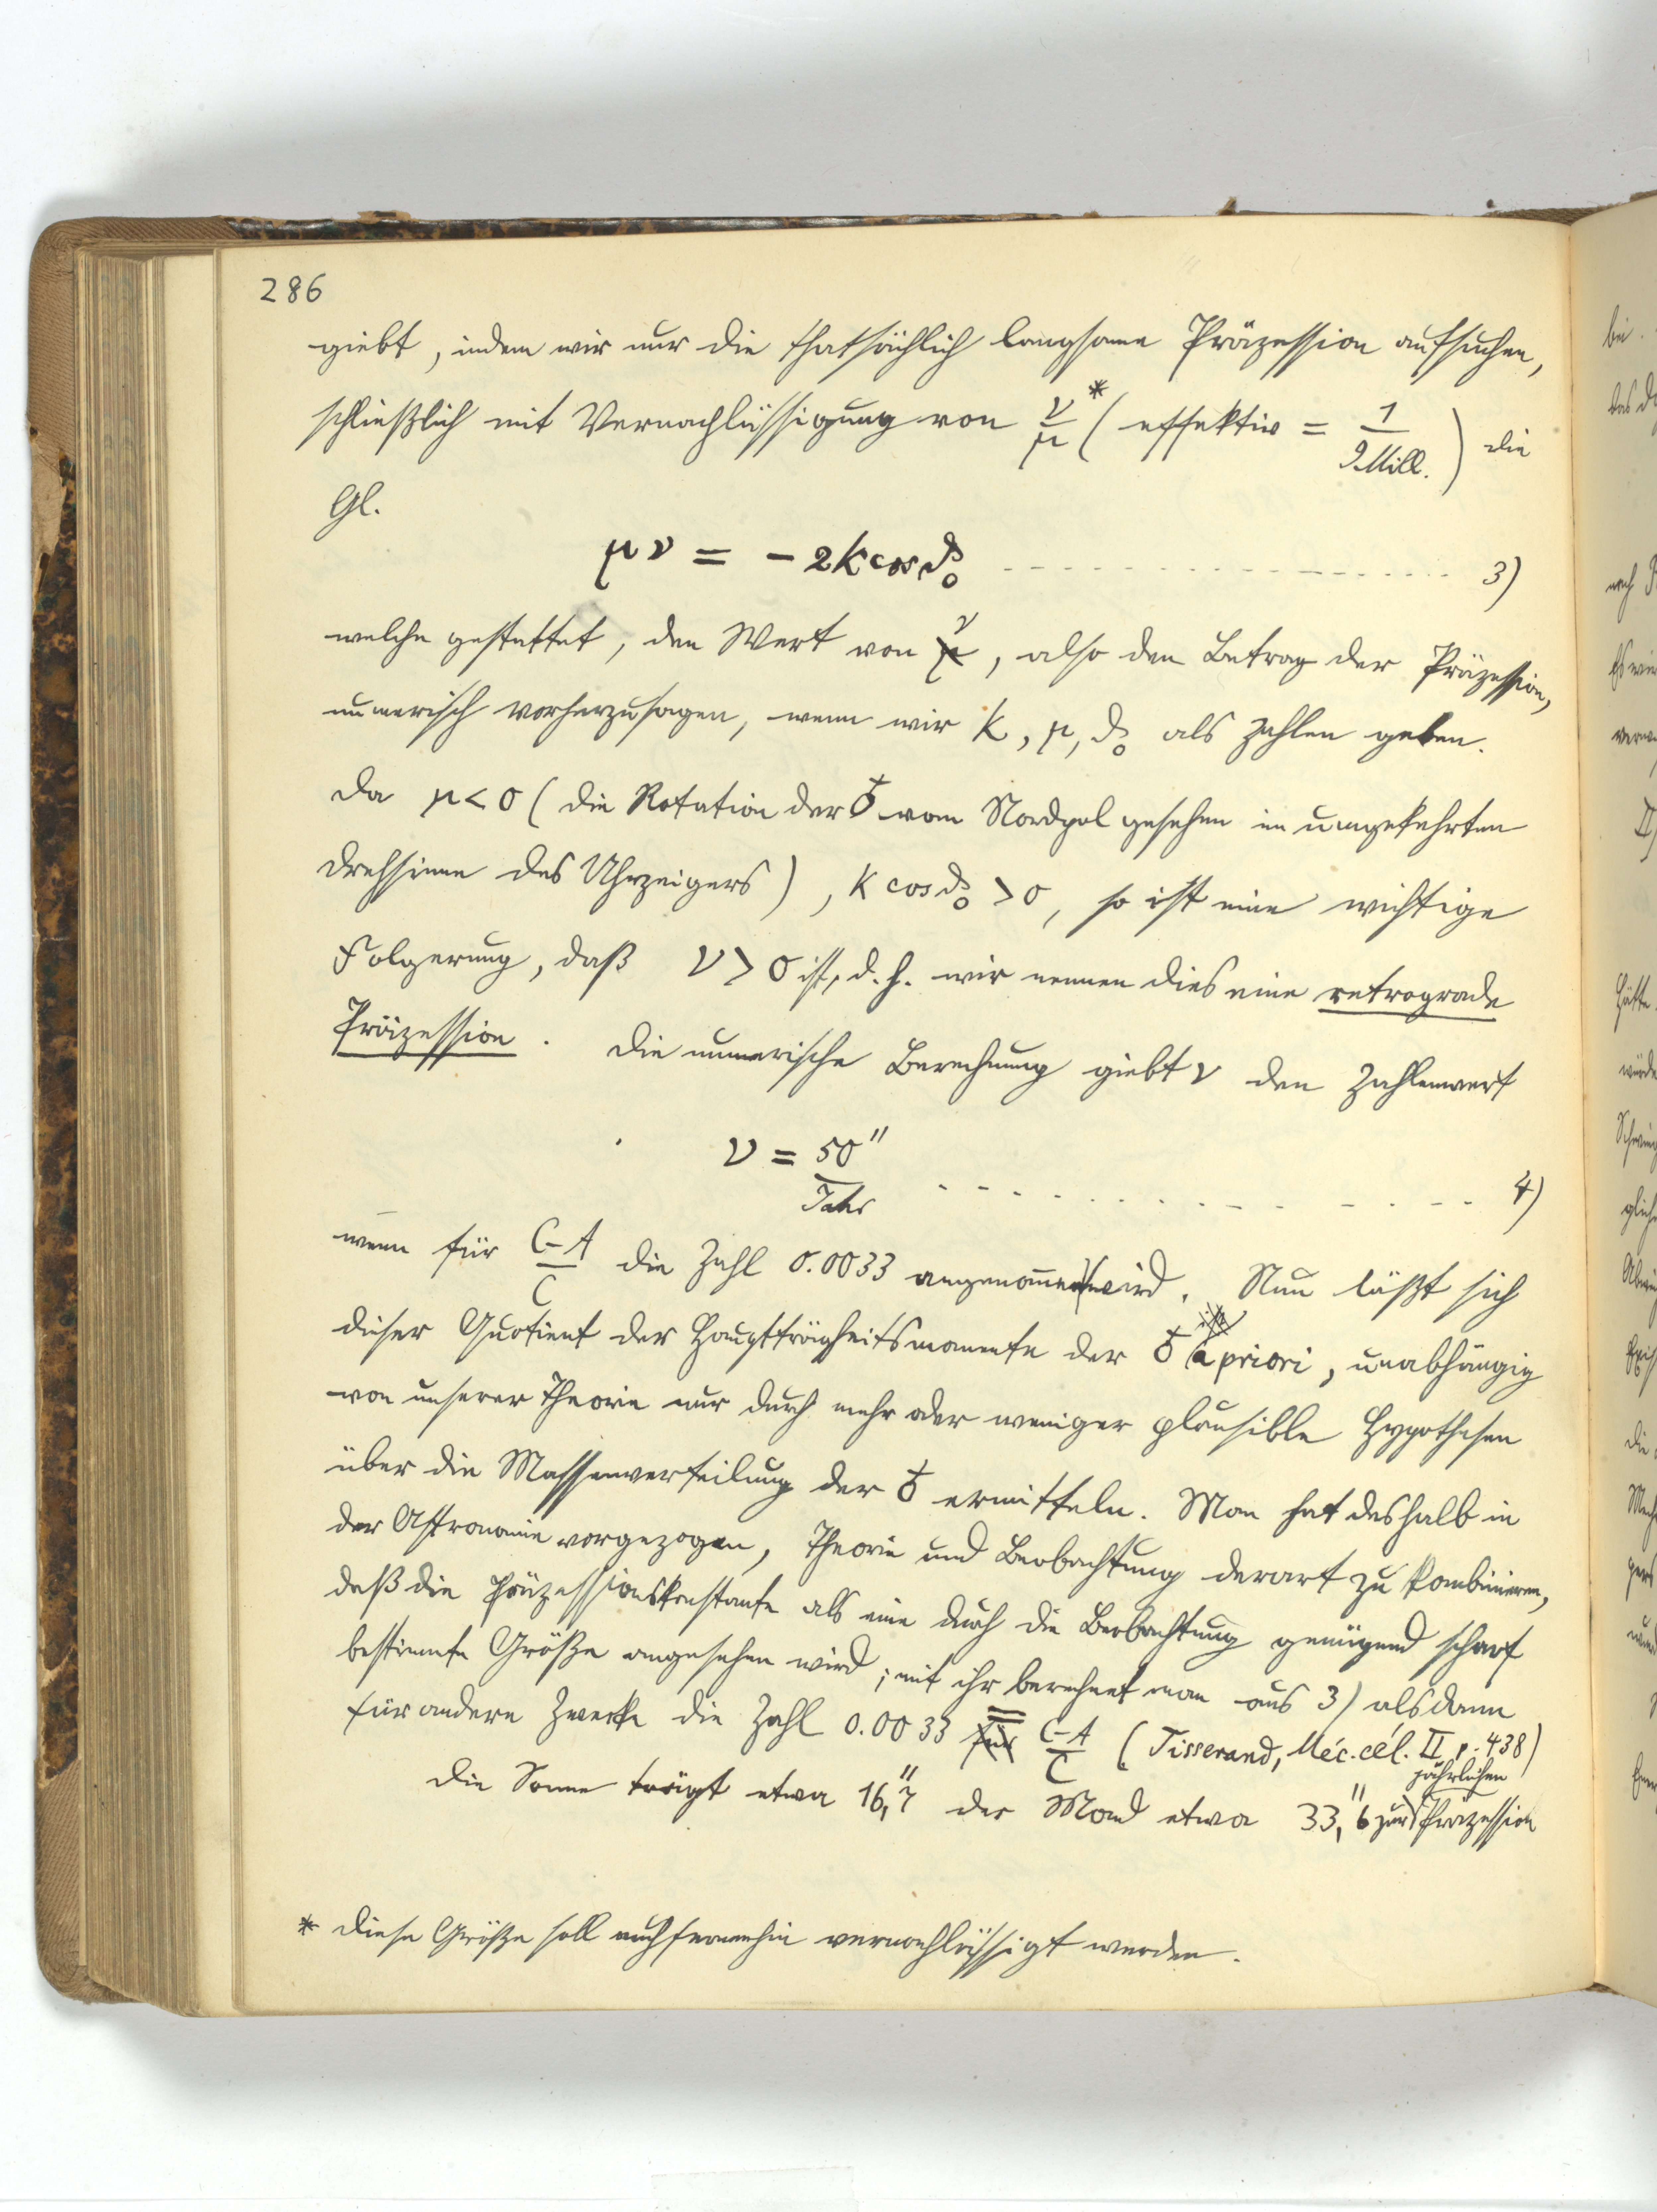 286
giebt, indem wir nur die thatsächlich langsame Präzession aufsuchen,
schließlich mit Vernachlässigung von ν/μ * (effektiv = 1/9 Mill.) die
Gl.
μν = -2k cos ϑ₀ - - - - - - - - - - 3)
welche gestattet, den Wert von ν, also den Betrag der Präzession,
numerisch vorherzusagen, wenn wir k, μ, ϑ₀ als Zahlen geben.
Da μ < 0 (die Rotation der ♁ vom Nordpol gesehen im umgekehrten
Drehsinne des Uhrzeigers), k cos ϑ₀ > 0, so ist eine wichtige
Folgerung, daß ν > 0 ist, d. h. wir nennen dies eine retrograde
Präzession. Die numerische Berechnung giebt ν den Zahlenwert
ν = 50″/Jahr - - - - - - - - - - 4)
wenn für (C-A)/C die Zahl 0.0033 angenom̅en wird. Nun läßt sich
dieser Quotient der Hauptträgheitsmomente der ♁ a priori, unabhängig
von unserer Theorie nur durch mehr oder weniger plausible Hypothesen
über die Massenverteilung der ♁ ermitteln. Man hat deshalb in
der Astronomie vorgezogen, Theorie und Beobachtung derart zu kombinieren,
daß die Präzessionskonstante als eine durch die Beobachtung genügend scharf
bestimmte Größe angesehen wird; mit ihr berechnet man aus 3) alsdann
für andere Zwecke die Zahl 0.0033 = (C-A)/C (Tisserand, Méc. cél. II p. 438)
Die Sonne trägt etwa 16,″7 der Mond etwa 33,″6 zur jährlichen Präzession
* Diese Größe soll auch fernerhin vernachlässigt werden.